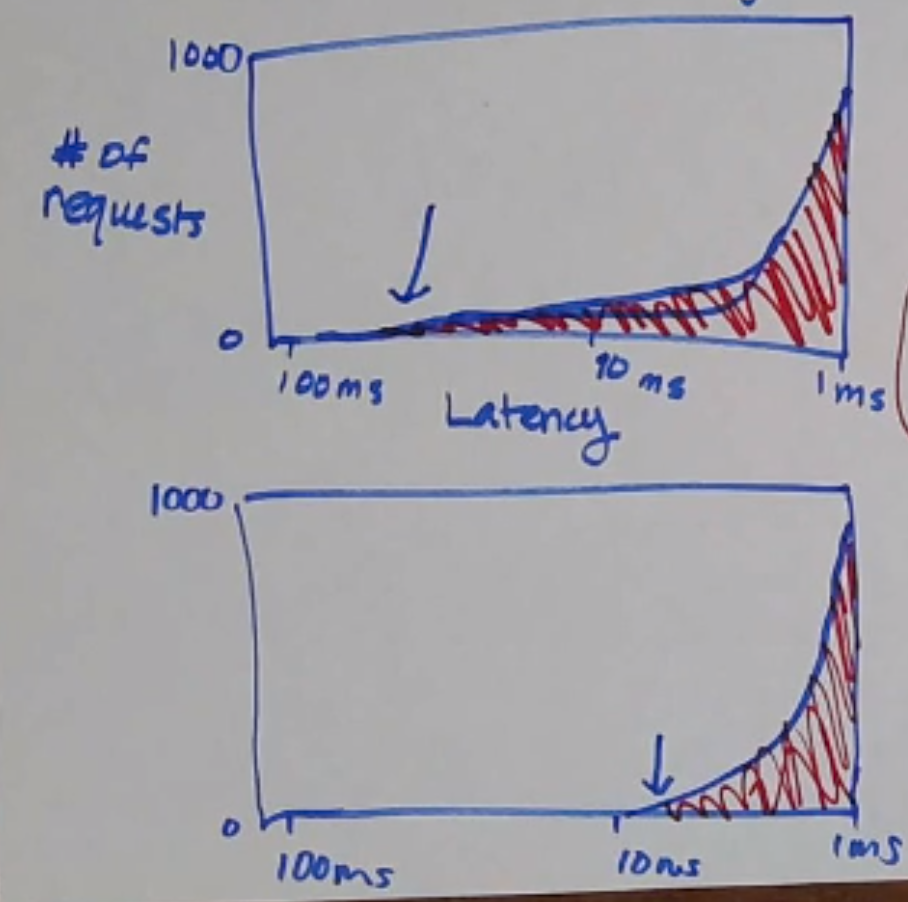 1000
# of
requests
0
100ms
10 ms
1ms
Latency
1000
0
100ms
10ms
1ms